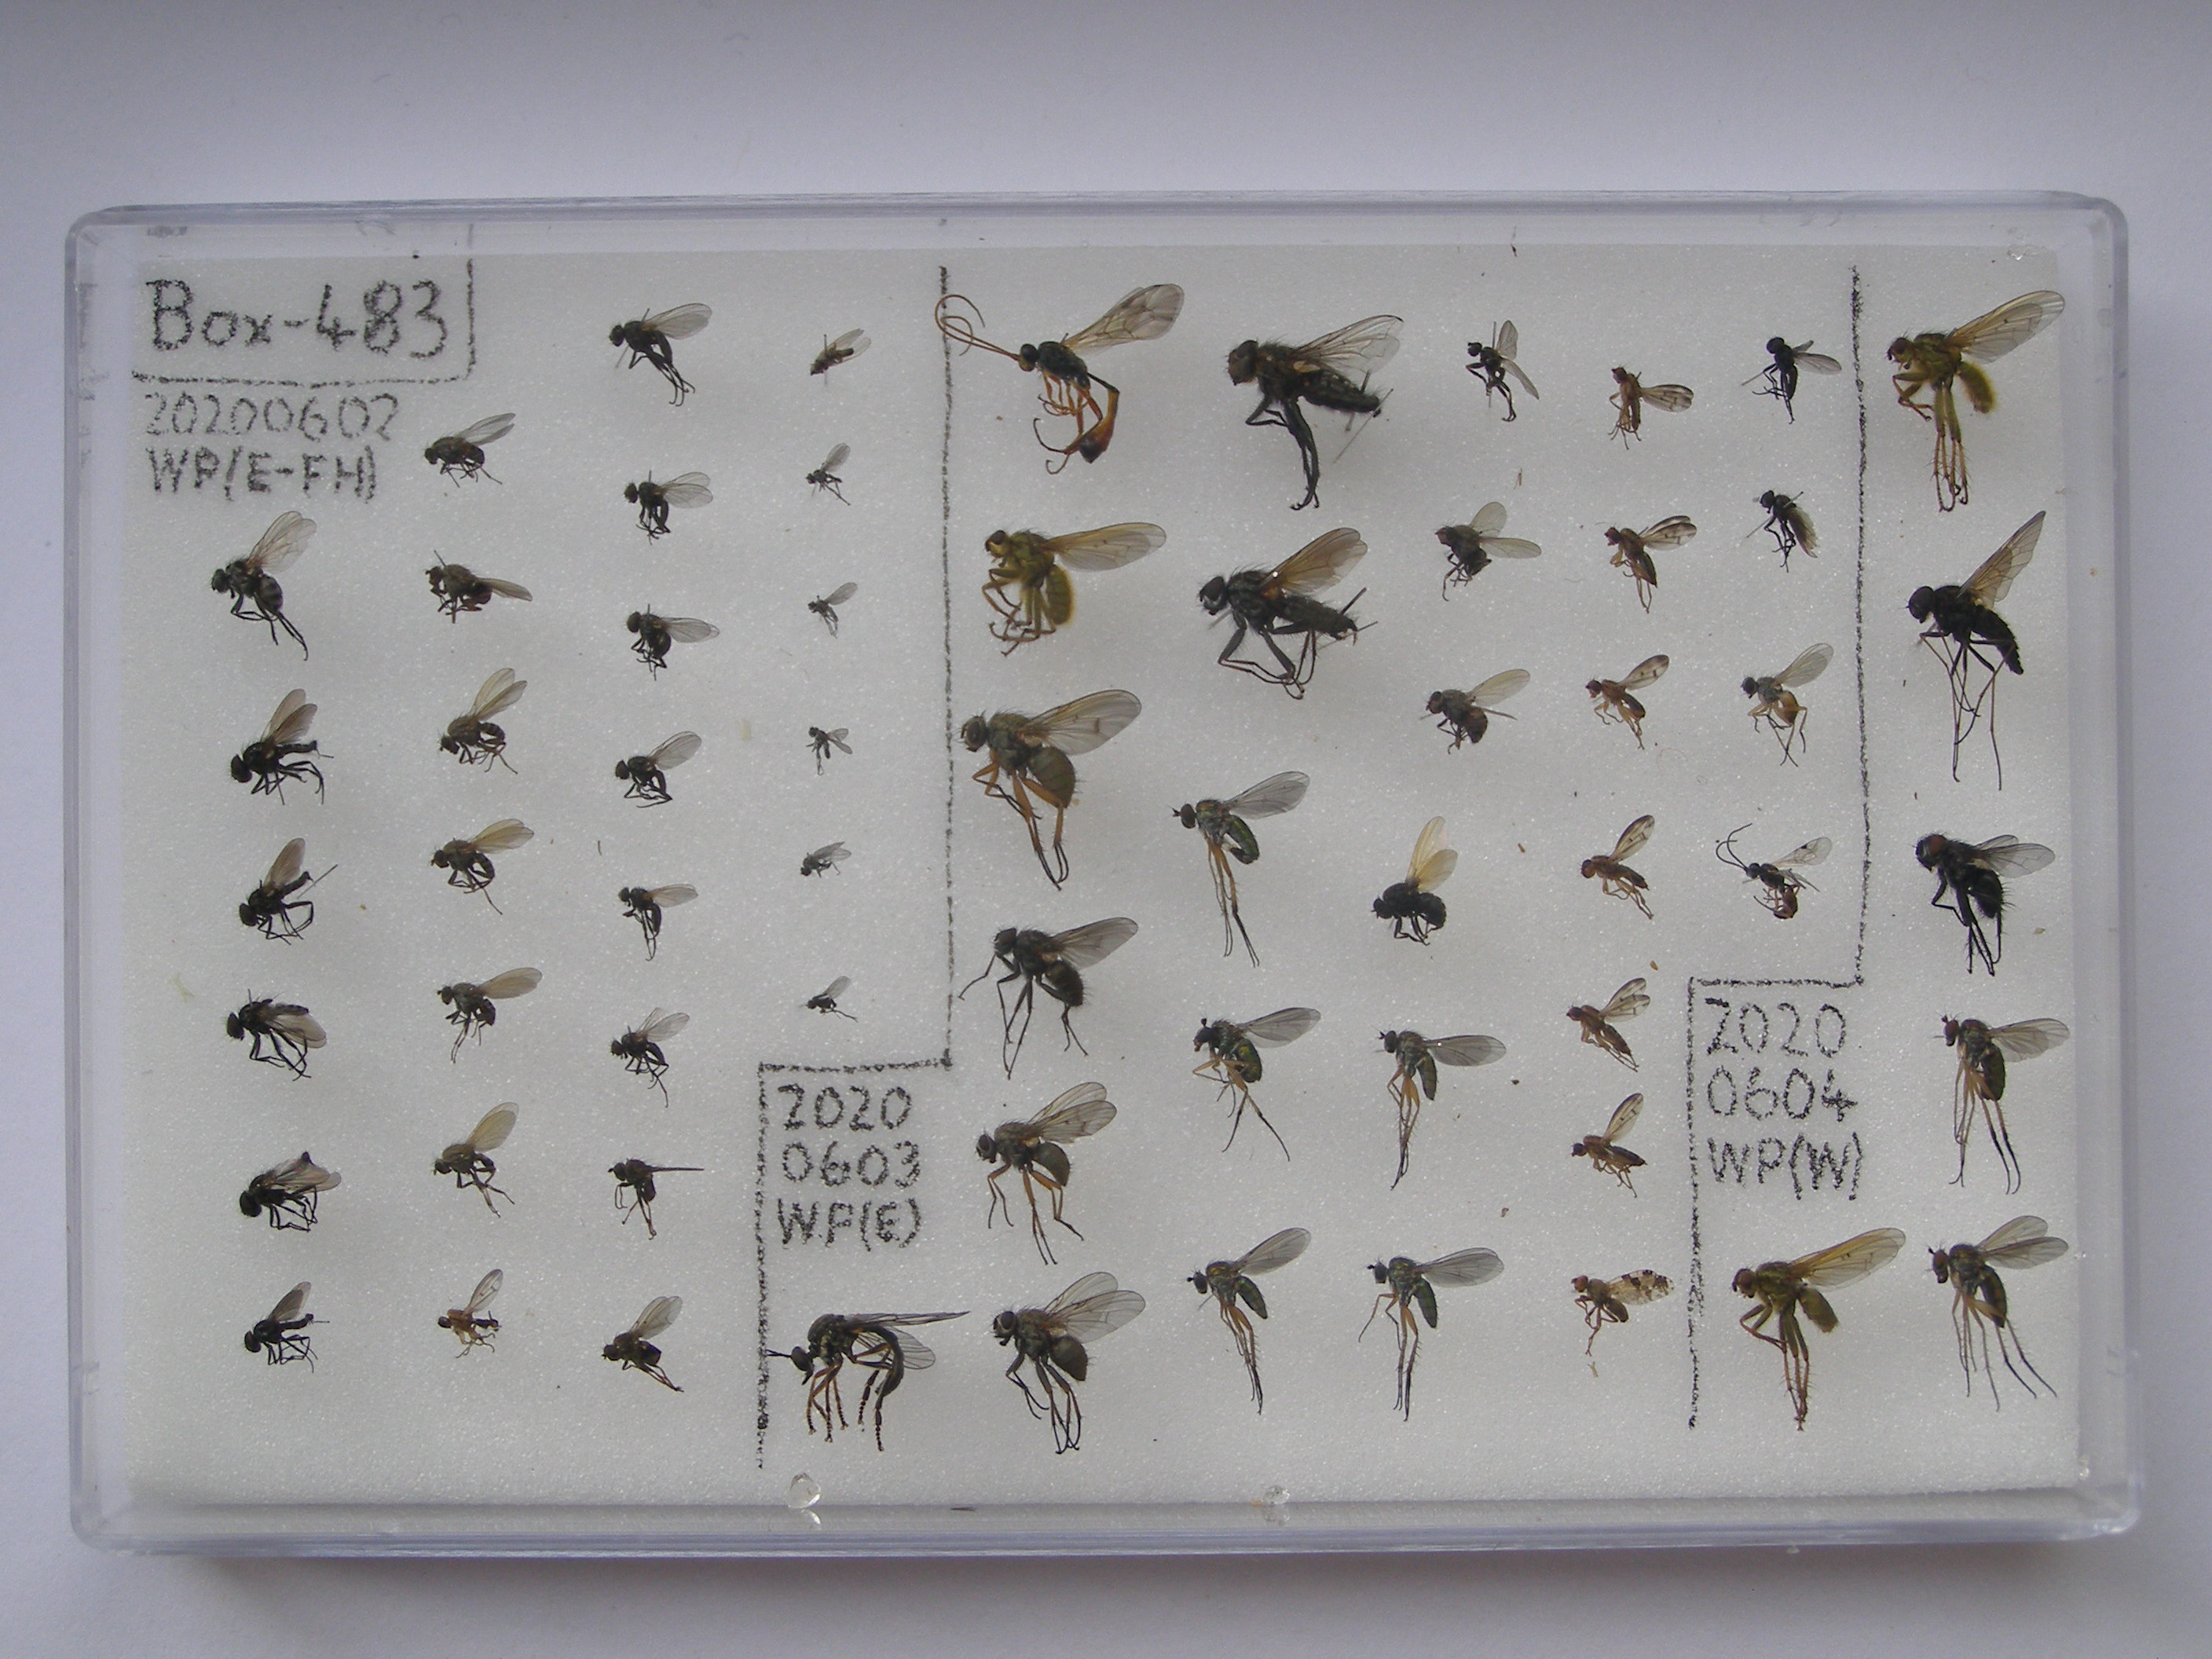 Box-483
20200602
WP(E-FH)
2020
0603
WP(E)
2020
0604
WP(W)